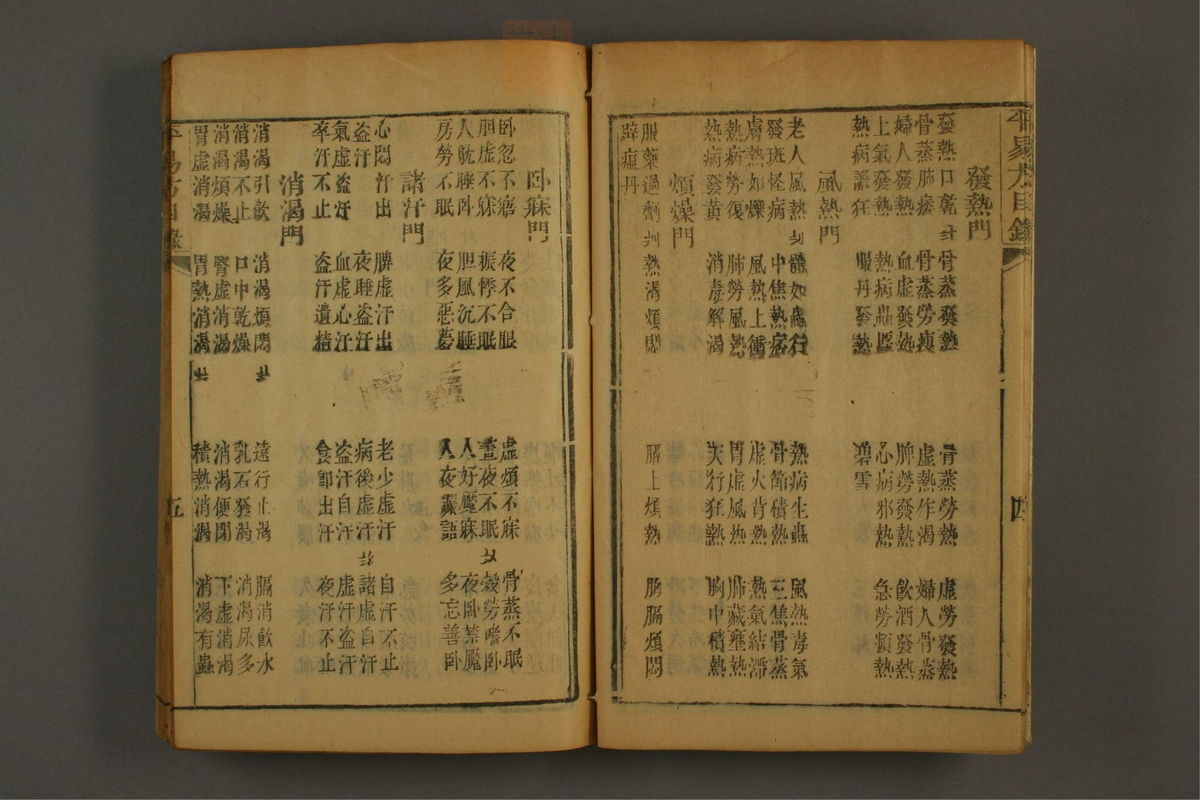 平易方目錄 四
發熱門
發熱口乾 骨蒸發熱 骨蒸勞熱 虛勞發熱
骨蒸肺痿 骨蒸勞瘦 虛熱作渴 婦人骨蒸
婦人發熱 血虛發熱 脾勞發熱 飲酒發熱
上氣發熱 熱病蟲䘌 心病邪熱 急勞煩熱
熱病譫狂 服丹發熱 碧雪
風熱門
老人風熱 體如蟲行 熱病生蟲 風熱毒氣
發斑怪病 中焦熱痞 骨節積熱 三焦骨蒸
膚熱如爍 風熱上衝 虛火背熱 熱氣結滯
熱病勞復 肺勞風熱 胃虛風熱 肺藏壅熱
熱病發黃 消毒解渴 天行狂熱 胸中積熱
煩燥門
服藥過劑 熱渴煩悶 膈上煩熱 胸膈煩悶
辟瘟丹
卧寐門
卧忽不寤 夜不合眼 虛煩不寐 骨蒸不眠
胆虛不寐 振悸不眠 晝夜不眠 穀勞嗜卧
人躭睡卧 胆風沉睡 人好魘寐 夜卧禁魘
房勞不眠 夜多惡夢 人夜讝語 多忘善卧
諸汗門
心悶汗出 脾虛汗出 老少虛汗 自汗不止
盜汗 夜睡盜汗 病後虛汗 諸虛自汗
氣虛盜汗 血虛心汗 盜汗自汗 虛汗盜汗
卒汗不止 盜汗遺精 食即出汗 夜汗不止
消渴門
消渴引飲 消渴煩悶 遠行止渴 膈消飲水
消渴不止 口中乾燥 乳石發渴 消渴尿多
消渴煩燥 腎虛消渴 消渴便閉 下虛消渴
胃虛消渴 胃熱消渴 積熱消渴 消渴有蟲
平易方目錄 五